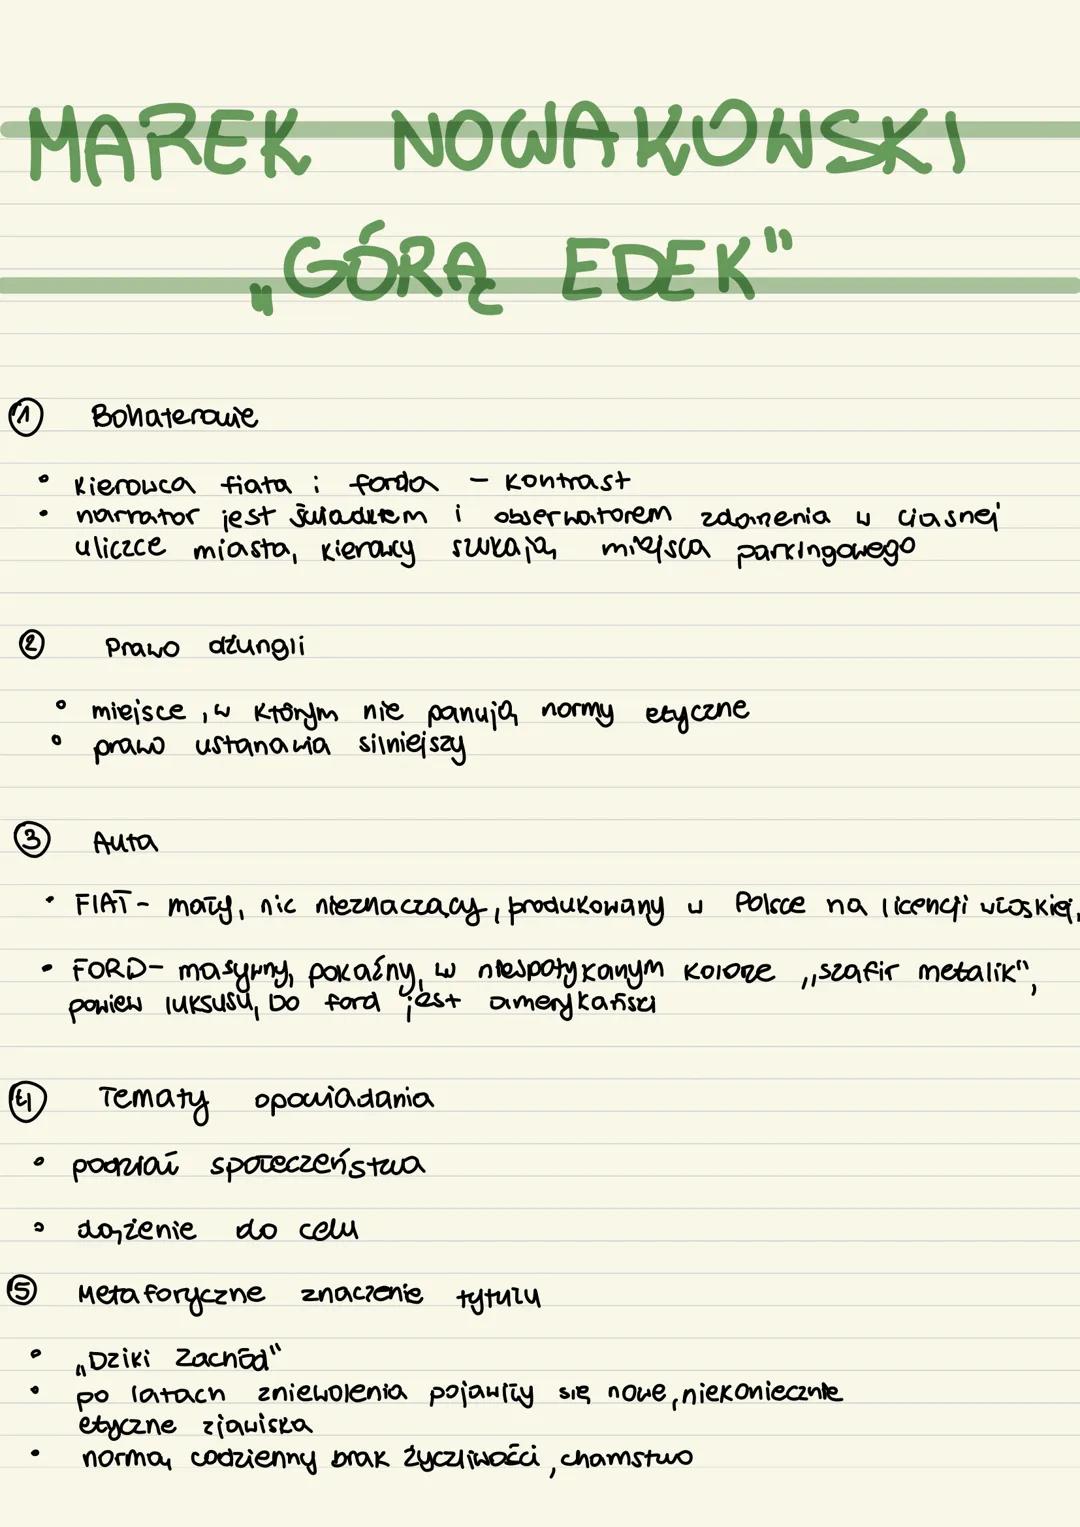 MAREK NOWAKOWSKI
„GÓRĄ EDEK"
① Bohaterowie
• Kierowca fiata i forda - kontrast
• narrator jest świadkiem i obserwatorem zdarzenia w ciasnej
uliczce miasta, kierowcy szukają miejsca parkingowego
② Prawo dżungli
• miejsce, w którym nie panują normy etyczne
• prawo ustanawia silniejszy
③ Auta
• FIAT - mały, nic nieznaczący, produkowany w Polsce na licencji włoskiej,
• FORD - masywny, pokaźny, w niespotykanym kolorze „szafir metalik",
powiew luksusu, bo ford jest amerykański
④ Tematy opowiadania
• podział społeczeństwa
• dążenie do celu
⑤ Metaforyczne znaczenie tytułu
• „Dziki Zachód"
• po latach zniewolenia pojawiły się nowe, niekoniecznie
etyczne zjawiska
• normą codzienny brak życzliwości, chamstwo